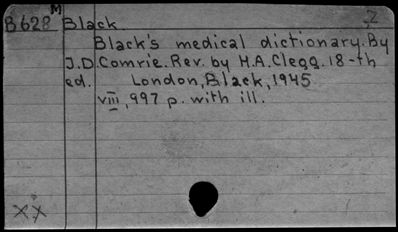 M 2
B628 Black
Black's medical dictionary. By
J.D. Comrie. Rev. by H.A. Clegg. 18-th
ed. London, Black, 1945
viii, 997 p. with ill.
XX